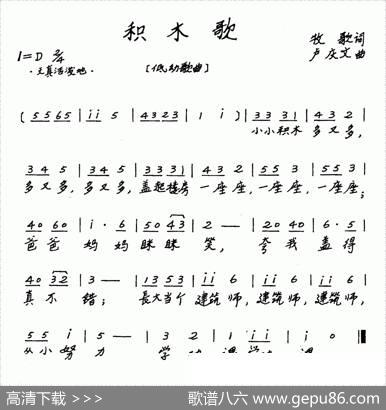 积木歌
1=D 2/4
牧歌词
天真活泼地
[低幼歌曲]
卢庆文曲
( 5 5 6 5 | i i 5 | 4 3 2 3 | 1 i ) | 3 3 3 1 | 4 3 2 |
小小积木 多又多,
3 4 5 | 3 4 5 | 3 3 3 1 | 4 3 2 | 5 5 3 | 5 5 3 |
多又多, 多又多, 盖起楼房 一座座, 一座座, 一座座;
4 0 6 0 | i · 6 | 5 0 4 3 | 2 — | 2 0 4 0 | 6 · 5 |
爸爸 妈妈 眯眯 笑, 夸我 盖得
4 0 3 2 | 3 — | 1 3 5 3 | i i 6 | i i 6 | i i 6 |
真不 错; 長大当个 建筑师, 建筑师, 建筑师,
5 5 i | 5 — | 3 2 | 1 i i | i 0 ‖
从小努力 学
高清下载 >>>
歌谱八六 www.gepu86.com